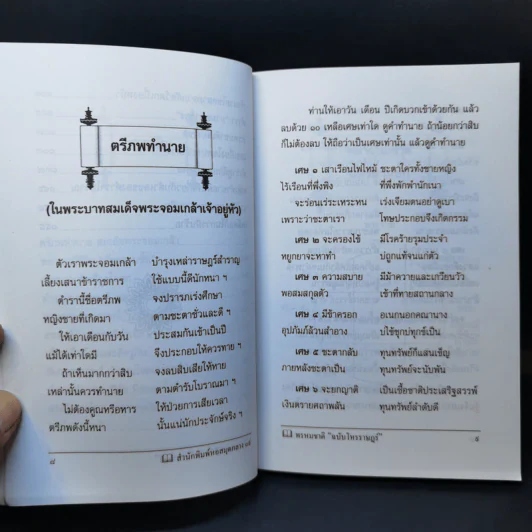 ตรีภพทำนาย
(ในพระบาทสมเด็จพระจอมเกล้าเจ้าอยู่หัว)
ตัวเราพระจอมเกล้า บำรุงเหล่าราษฎร์สำราญ
เลี้ยงเสนาข้าราชการ ใช้แบบนี้ดีนักหนา ฯ
ตำรานี้ชื่อตรีภพ จงปรารภเร่งศึกษา
หญิงชายที่เกิดมา ตามชะตาชั่วและดี ฯ
ให้เอาเดือนกับวัน ประสมกันเข้าเป็นปี
แม้ได้เท่าใดมี จึงประกอบให้ควรทาย ฯ
ถ้าเห็นมากกว่าสิบ จงลบสิบเสียให้หาย
เหล่านั้นควรทำนาย ตามตำรับโบราณมา ฯ
ไม่ต้องคูณหรือหาร ให้ป่วยการเสียเวลา
ตรีภพดังนี้หนา นั้นแน่นักประจักษ์จริง ฯ
๘ สำนักพิมพ์หอสมุดกลาง ๐๙
ท่านให้เอาวัน เดือน ปีเกิดบวกเข้าด้วยกัน แล้ว
ลบด้วย ๑๐ เหลือเศษเท่าใด ดูคำทำนาย ถ้าน้อยกว่าสิบ
ก็ไม่ต้องลบ ให้ถือว่าเป็นเศษเท่านั้น แล้วดูคำทำนาย
เศษ ๑ เสาเรือนไฟไหม้ ชะตาใครทั้งชายหญิง
ไร้เรือนที่พึ่งพิง ที่พึ่งพักพำนักเนา
จะร่อนเร่ระเหระหน เร่งเจียมตนอย่าดูเบา
เพราะว่าชะตาเรา โทษประกอบจึงเกิดกรรม
เศษ ๒ จะครองไข้ มีโรคร้ายรุมประจำ
หยูกยาจะหาทำ ปลูกแท้จนแก่ตัว
เศษ ๓ ความสบาย มีม้าควายและเกวียนวัว
พอสมสกุลตัว เข้าที่ทายสถานกลาง
เศษ ๔ มีข้าครอก อเนกนอกคณานาง
อุปภัมภ์ล้วนสำอาง บใช้ขุกบทุกข์เป็น
เศษ ๕ ชะตากลับ ทุนทรัพย์ก็แสนเข็ญ
ภายหลังชะตาเป็น ทุนทรัพย์จะนับพัน
เศษ ๖ จะยกญาติ เป็นเชื้อชาติประเสริฐสรรพ์
เงินตรายศถาพลัน ทุนทรัพย์ลำดับดี
พรหมชาติ "ฉบับโหรราษฎร์" ๙